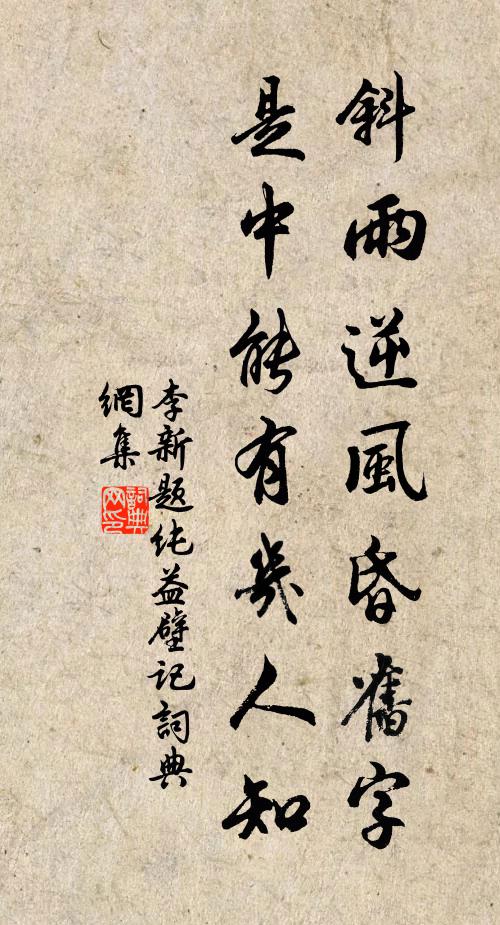 斜雨逆風昏舊字
是中能有幾人知
李新題純益壁記詞典
網集
詞典
网印